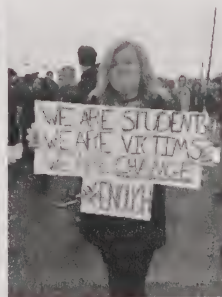 WE ARE STUDENTS
WE ARE VICTIMS
WE ARE CHANGE
#ENOUGH